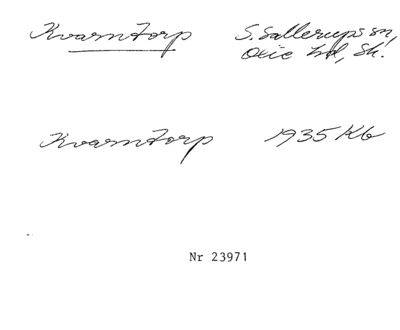 Kvarntorp S. Sallerups sn,
Oxie hd, Sk.
Kvarntorp 1935 Kb
Nr 23971